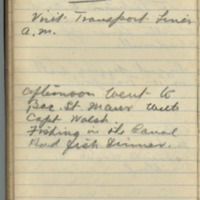 Visit Transport Lines
A.M.
Afternoon went to
Bac St Maur with
Capt Walsh
Fishing in the Canal
Had fish Dinner.